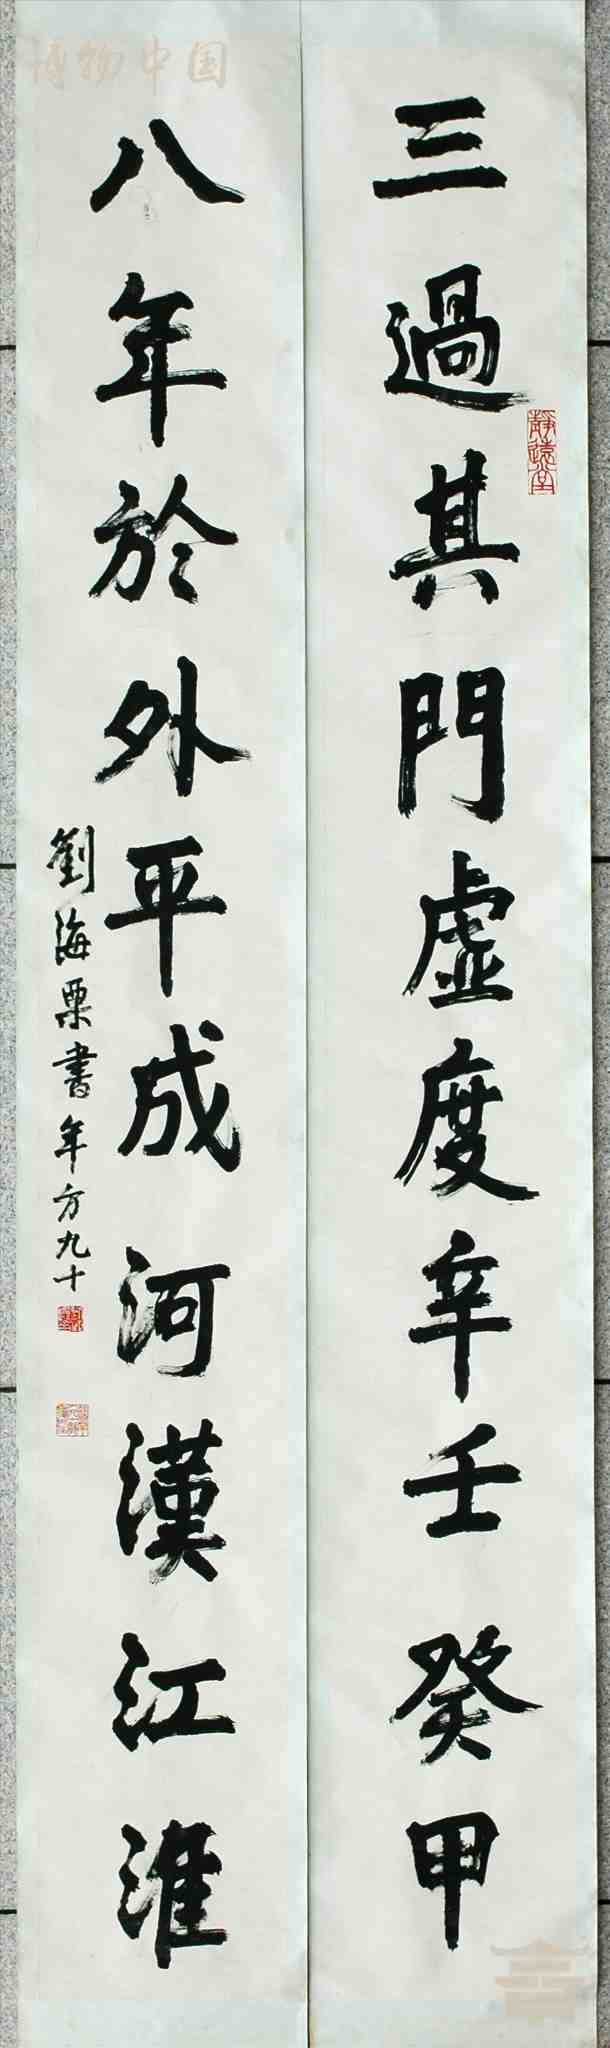 三過其門虛度辛壬癸甲
靜遠堂
八年於外平成河漢江淮
劉海粟書年方九十
博物中国